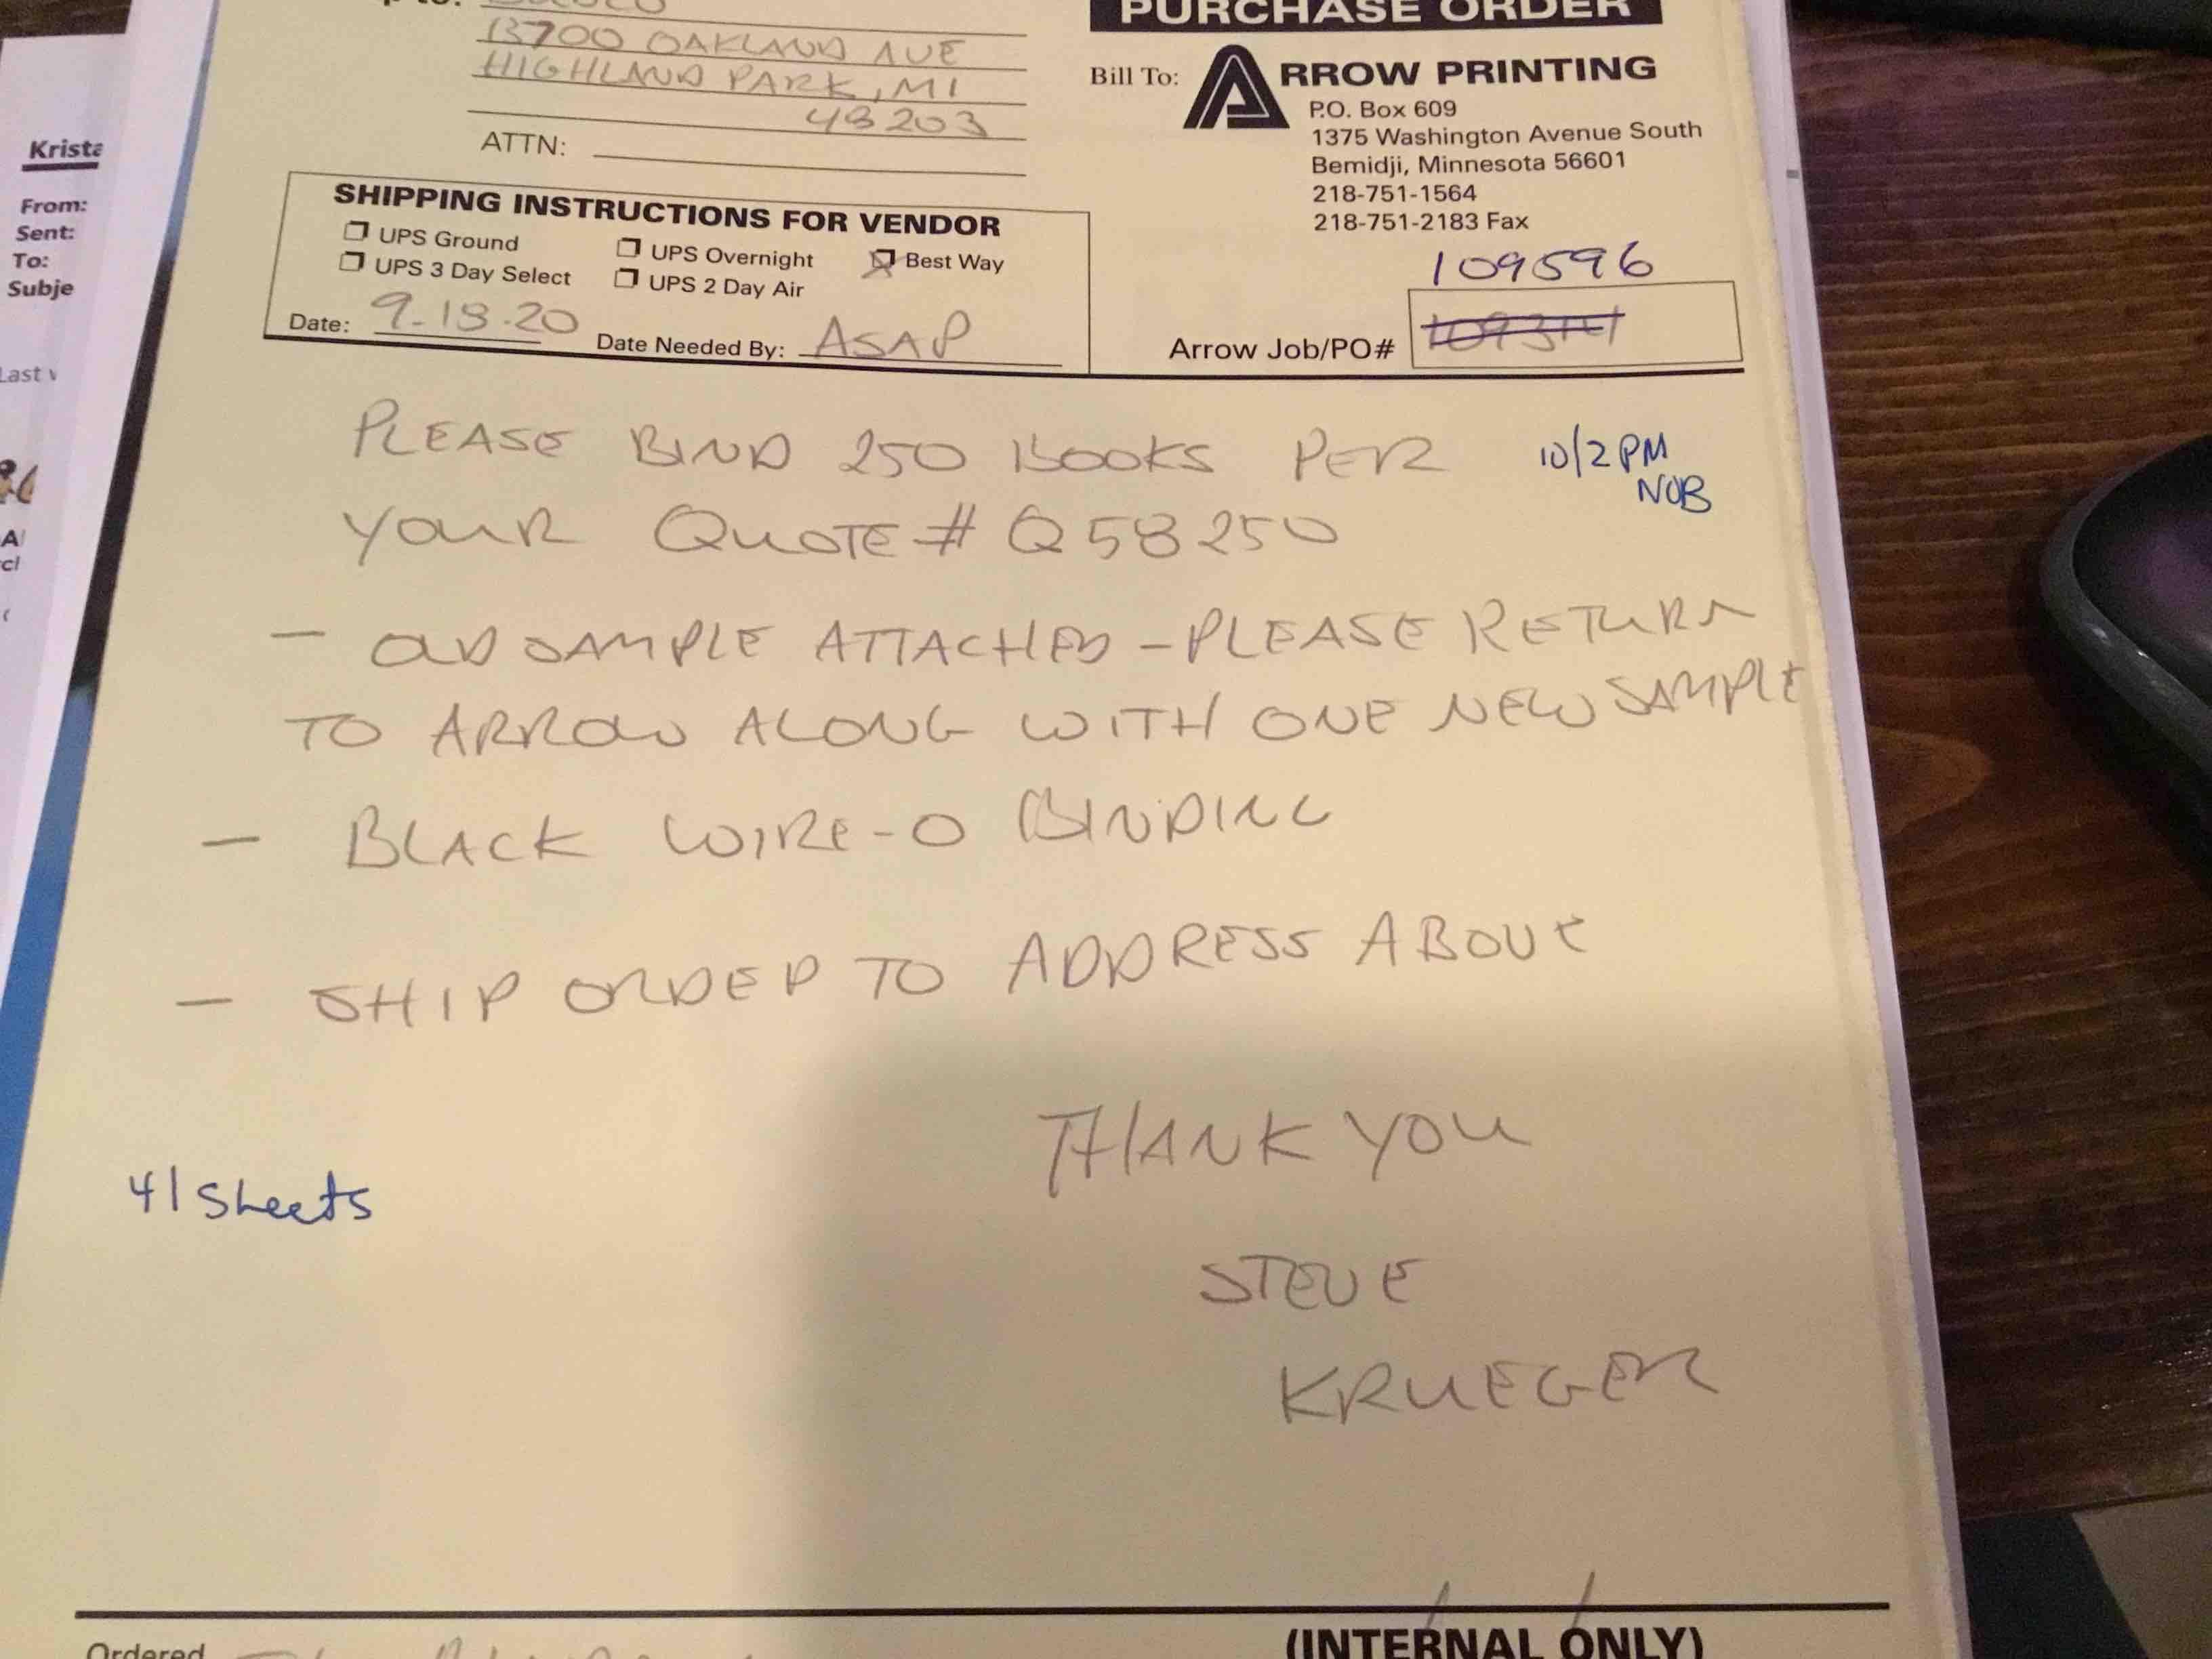 PURCHASE ORDER
13700 OAKLAND AVE
HIGHLAND PARK, MI
48203
ATTN:
Bill To:
ARROW PRINTING
P.O. Box 609
1375 Washington Avenue South
Bemidji, Minnesota 56601
218-751-1564
218-751-2183 Fax
SHIPPING INSTRUCTIONS FOR VENDOR
UPS Ground UPS Overnight Best Way
UPS 3 Day Select UPS 2 Day Air
Date: 9-18-20 Date Needed By: ASAP
109596
Arrow Job/PO#
PLEASE BIND 250 BOOKS PER
10/2 PM
NOB
YOUR QUOTE # Q58250
— OLD SAMPLE ATTACHED - PLEASE RETURN
TO ARROW ALONG WITH ONE NEW SAMPLE
— BLACK WIRE-O BINDING
— SHIP ORDER TO ADDRESS ABOVE
THANK YOU
41 Sheets
STEVE
KRUEGER
Ordered
(INTERNAL ONLY)
Krista
From:
Sent:
To:
Subje
Last